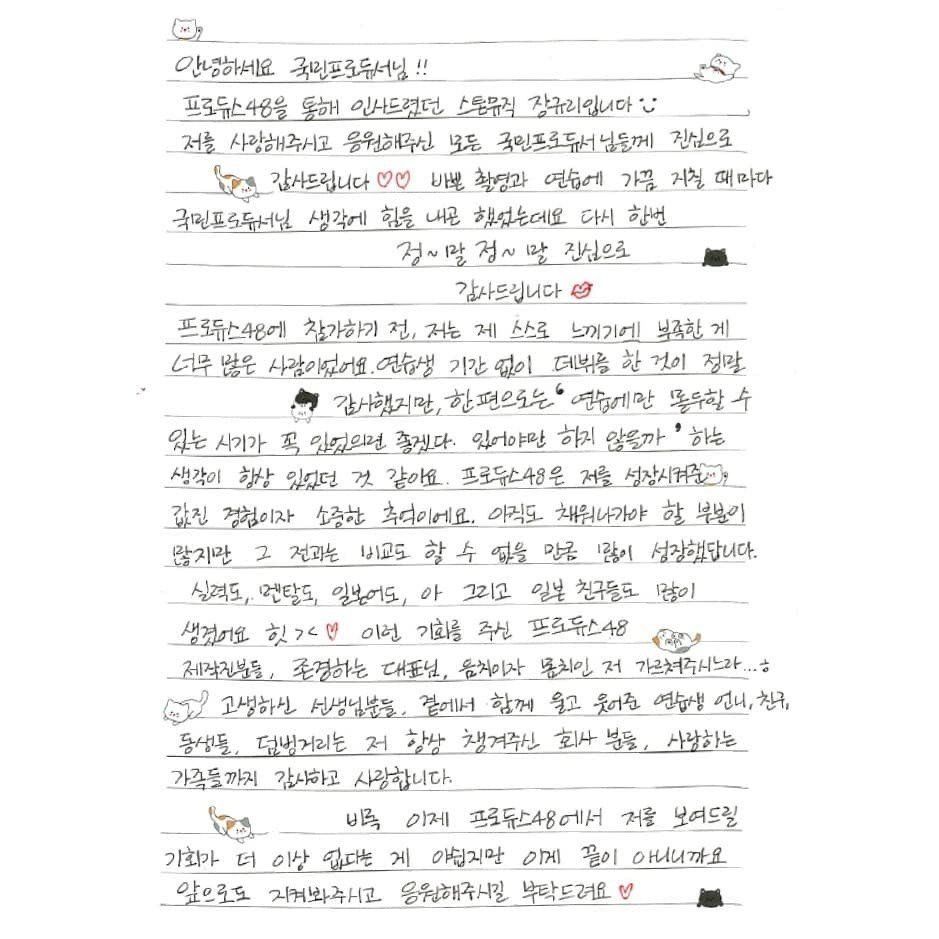 안녕하세요 국민프로듀서님!!
프로듀스48을 통해 인사드렸던 스톤뮤직 장규리입니다
저를 사랑해주시고 응원해주신 모든 국민프로듀서님들께 진심으로
감사드립니다♡♡ 바쁜 촬영과 연습에 가끔 지칠 때마다
국민프로듀서님 생각에 힘을 내곤 했었는데요 다시 한번
정~말 정~말 진심으로
감사드립니다
프로듀스48에 참가하기 전, 저는 제 스스로 느끼기에 부족한 게
너무 많은 사람이었어요. 연습생 기간 없이 데뷔를 한 것이 정말
감사했지만, 한편으로는 ‘연습에만 몰두할 수
있는 시기가 꼭 있었으면 좋겠다. 있어야만 하지 않을까’ 하는
생각이 항상 있었던 것 같아요. 프로듀스48은 저를 성장시켜준
값진 경험이자 소중한 추억이에요. 아직도 채워나가야 할 부분이
많지만 그 전과는 비교도 할 수 없을 만큼 많이 성장했답니다.
실력도, 멘탈도, 일본어도, 아 그리고 일본 친구들도 많이
생겼어요 힛 >< ♡ 이런 기회를 주신 프로듀스48
제작진분들, 존경하는 대표님, 음치이자 몸치인 저 가르쳐주시느라...ㅎ
고생하신 선생님분들, 곁에서 함께 울고 웃어준 연습생 언니, 친구,
동생들, 덤벙거리는 저 항상 챙겨주신 회사 분들, 사랑하는
가족들까지 감사하고 사랑합니다.
비록 이제 프로듀스48에서 저를 보여드릴
기회가 더 이상 없다는 게 아쉽지만 이게 끝이 아니니까요
앞으로도 지켜봐주시고 응원해주시길 부탁드려요♡